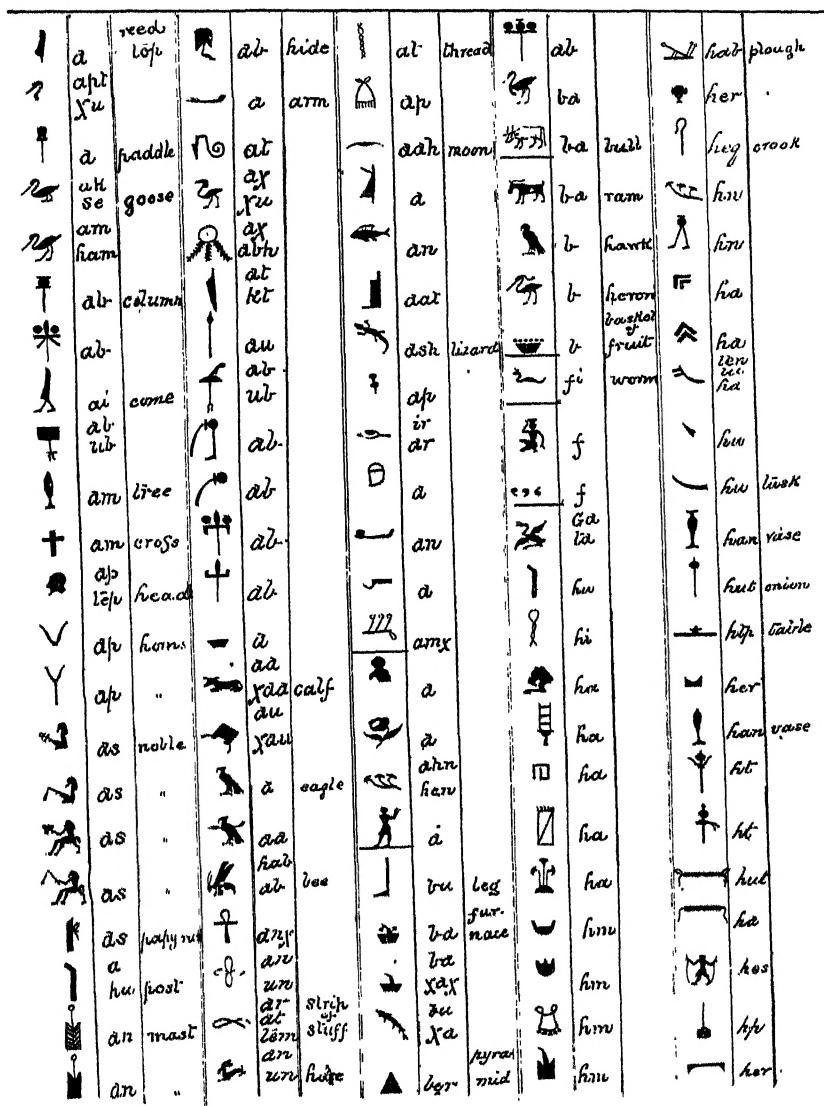 a reed top
apt
χu
a paddle
uk
se goose
am
ham
ab column
ab
ai come
ab
ub
am tree
am cross
ap
tep head
ap horns
ap "
as noble
as "
as "
as "
as papyrus
a
hu post
an mast
an "
ab hide
a arm
at
aχ
χu
aχ
abh
at
kt
au
ab
ub
ab
ab
ab
ab
a
aa
χaa calf
au
χau
a eagle
aa
hab
ab bee
anχ
an
un
ar
at
tem strip of stuff
an
un hare
at thread
ap
aah moon
a
an
aat
ash lizard
ap
ir
ar
a
an
a
amχ
a
a
ahn
hen
a
bu leg
ba furnace
ba
χaχ
bu
χa
ber pyramid
ab
ba
ba bull
ba ram
b hawk
b heron
b basket of fruit
fi worm
f
f
Ga
ta
hu
hi
ha
ha
ha
ha
hm
hm
hm
hm
hab plough
her
heq crook
hn
hn
ha
ha
hu
hu tusk
han vase
hut onion
htp table
her
han vase
ht
ht
hut
ha
hes
hp
her